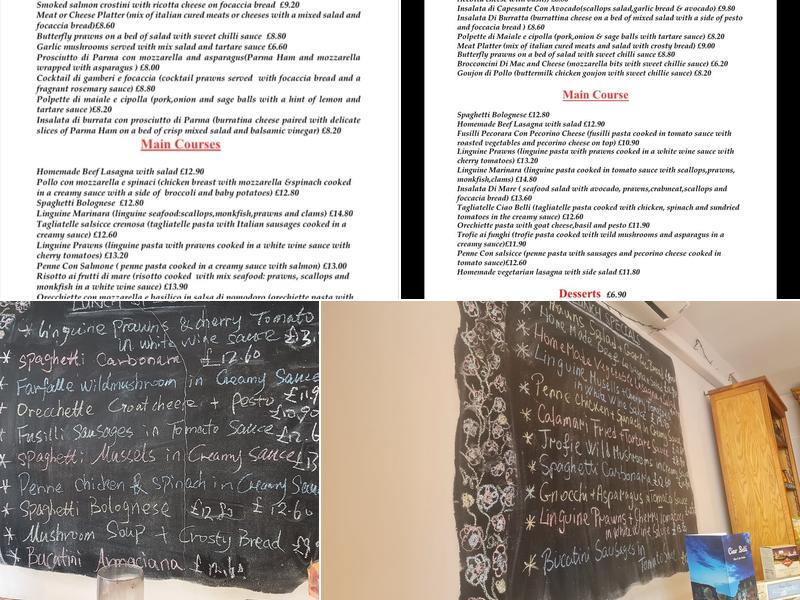 Smoked salmon crostini with ricotta cheese on focaccia bread £9.20
Meat or Cheese Platter (mix of italian cured meats or cheeses with a mixed salad and
focaccia bread)£8.60
Butterfly prawns on a bed of salad with sweet chilli sauce £8.80
Garlic mushrooms served with mix salad and tartare sauce £6.60
Prosciutto di Parma con mozzarella and asparagus(Parma Ham and mozzarella
wrapped with asparagus ) £8.00
Cocktail di gamberi e focaccia (cocktail prawns served with focaccia bread and a
fragrant rosemary sauce) £8.80
Polpette di maiale e cipolla (pork,onion and sage balls with a hint of lemon and
tartare sauce )£8.20
Insalata di burrata con prosciutto di Parma (burratina cheese paired with delicate
slices of Parma Ham on a bed of crisp mixed salad and balsamic vinegar) £8.20
Main Courses
Homemade Beef Lasagna with salad £12.90
Pollo con mozzarella e spinaci (chicken breast with mozzarella &spinach cooked
in a creamy sauce with a side of broccoli and baby potatoes) £12.80
Spaghetti Bolognese £12.80
Linguine Marinara (linguine seafood:scallops,monkfish,prawns and clams) £14.80
Tagliatelle salsicce cremosa (tagliatelle pasta with Italian sausages cooked in a
creamy sauce) £12.60
Linguine Prawns (linguine pasta with prawns cooked in a white wine sauce with
cherry tomatoes) £13.20
Penne Con Salmone ( penne pasta cooked in a creamy sauce with salmon) £13.00
Risotto ai frutti di mare (risotto cooked with mix seafood: prawns, scallops and
monkfish in a white wine sauce) £13.90
Orecchiette con mozzarella e basilico in salsa di pomodoro (orechiette pasta with
Insalata di Capesante Con Avocado(scallops salad,garlic bread & avocado) £9.80
Insalata Di Burratta (burrattina cheese on a bed of mixed salad with a side of pesto
and foccacia bread ) £8.60
Polpette di Maiale e cipolla (pork,onion & sage balls with tartare sauce) £8.20
Meat Platter (mix of italian cured meats and salad with crosty bread) £9.00
Butterfly prawns on a bed of salad with sweet chilli sauce £8.80
Brocconcini Di Mac and Cheese (mozzarella bits with sweet chillie sauce) £6.20
Goujon di Pollo (buttermilk chicken goujon with sweet chillie sauce) £8.20
Main Course
Spaghetti Bolognese £12.80
Homemade Beef Lasagna with salad £12.90
Fusilli Pecorara Con Pecorino Cheese (fusilli pasta cooked in tomato sauce with
roasted vegetables and pecorino cheese on top) £10.90
Linguine Prawns (linguine pasta with prawns cooked in a white wine sauce with
cherry tomatoes) £13.20
Linguine Marinara (linguine pasta cooked in tomato sauce with scallops,prawns
monkfish,clams) £14.80
Insalata Di Mare ( seafood salad with avocado, prawns,crabmeat,scallops and
foccacia bread) £13.60
Tagliatelle Ciao Belli (tagliatelle pasta cooked with chicken, spinach and sundried
tomatoes in the creamy sauce) £12.60
Orechiette pasta with goat cheese,basil and pesto £11.90
Trofie ai funghi (trofie pasta cooked with wild mushrooms and asparagus in a
creamy sauce)£11.90
Penne Con salsicce (penne pasta with sausages and pecorino cheese cooked in
tomato sauce)£12.60
Homemade vegetarian lasagna with side salad £11.80
Desserts £6.90
* Linguine Prawns & cherry Tomato
in white wine sauce £13.
* spaghetti Carbonara £12.60
* Farfalle wildmushroom in Creamy Sauce
* Orecchette Croatcheese + pesto £11.9
£10.90
* Fusilli Sausages in Tomato Sauce £12.6
* spaghetti Mussels in Creamy sauce £13
* Penne chicken & spinach in Creamy Sauce
* Spaghetti Bolognese £12.80 £12.60
* Mushroom Soup + Crosty Bread £9
* Bucatini Amaciana
SPECIALS
Prawns Salad + Garlic Bread
* Home Made Beef Lasagna
* HomeMade Vegetable Lasagna
* Linguine Mussels + cherry Tomatoes
in White Wine Sauce
* Penne Chicken + Spinach in Creamy
* Calamari Fried + Tartare Sauce
* Trofie Wild Mushrooms in Cream
* Spaghetti Carbonara
* Gnocchi + Asparagus in Tomato Sauce
* Linguine Prawns + Cherry Tomatoes
in White wine Sauce
* Bucatini Sausages in
Tomato
Ciao Belli